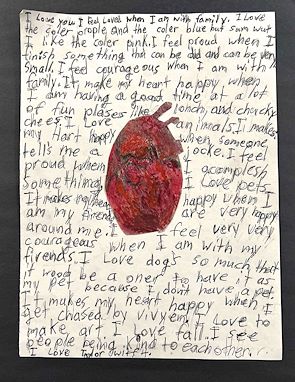 I Love you I Feel Loved when I am with family. I Love
the coler prople and the coler blue but sum wut
I like the coler pink. I feel proud when I
finish something that can be dad and can be very
small. I feel courageous when I am with my
family. It make my heart happy when
I am having a good time at a lot
of fun plases like lonch, and chocky
chees I Love animals. It makes
my Hart happy when someone
tells me a jocke. I feel
proud when I acomplesh
something. I Love pets.
It makes my heart happy when I
am my firends are very happy
around mie. I feel very very
courageous when I am with my
firends. I Love dogs so much that
it wood be a oner to have it as
my pet because I dont have a pet.
It makes my heart happy when I
get chased by vivyen. I Love to
make art I Love fall. I see
people being kind to each other.
I Love Taylor Swift.